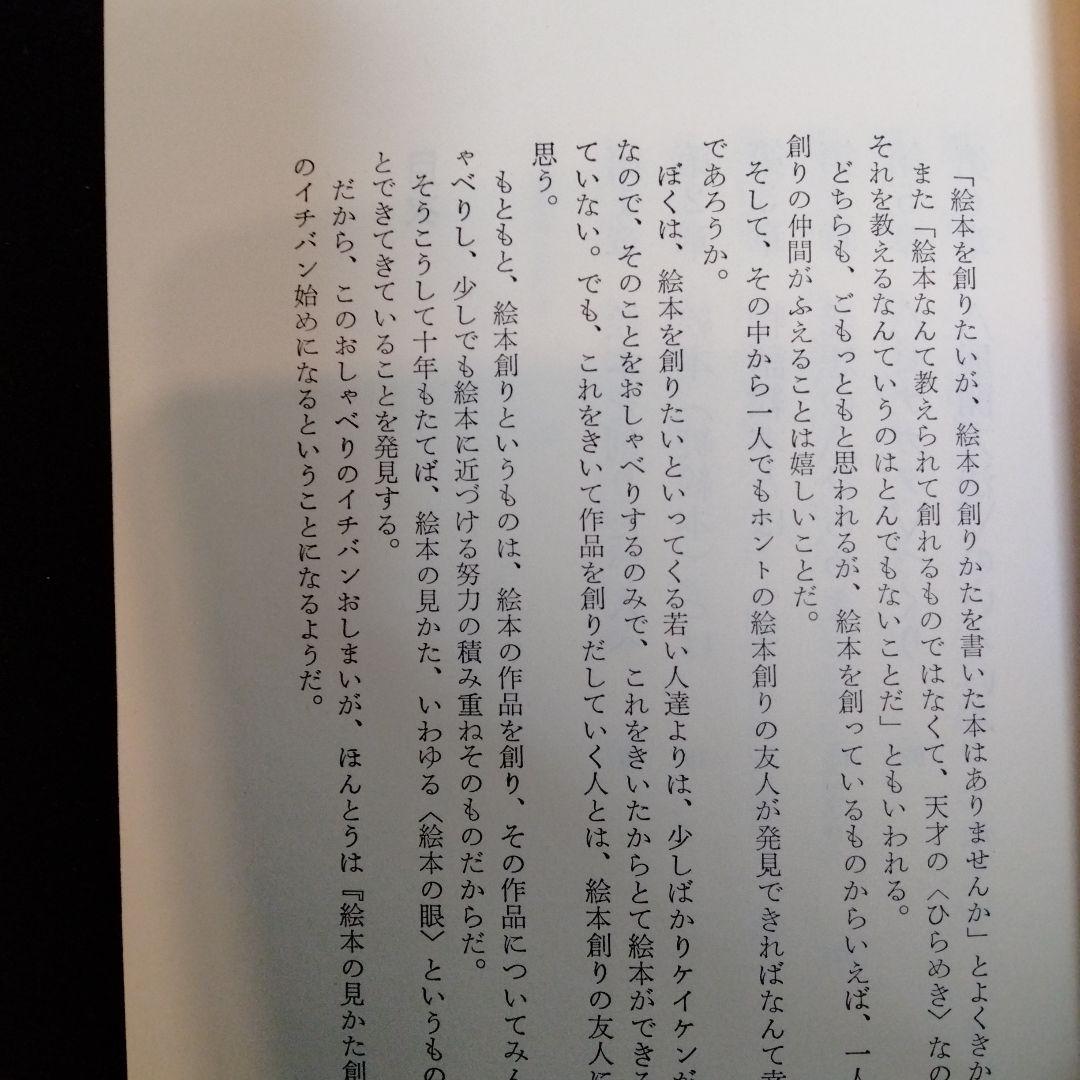 「絵本を創りたいが、絵本の創りかたを書いた本はありませんか」とよくきか
また「絵本なんて教えられて創れるものではなくて、天才の〈ひらめき〉なの
それを教えるなんていうのはとんでもないことだ」ともいわれる。
どちらも、ごもっともと思われるが、絵本を創っているものからいえば、一人
創りの仲間がふえることは嬉しいことだ。
そして、その中から一人でもホントの絵本創りの友人が発見できればなんて幸
であろうか。
ぼくは、絵本を創りたいといってくる若い人達よりは、少しばかりケイケンが
なので、そのことをおしゃべりするのみで、これをきいたからとて絵本ができる
ていない。でも、これをきいて作品を創りだしていく人とは、絵本創りの友人に
思う。
もともと、絵本創りというものは、絵本の作品を創り、その作品についてみん
ゃべりし、少しでも絵本に近づける努力の積み重ねそのものだからだ。
そうこうして十年もたてば、絵本の見かた、いわゆる〈絵本の眼〉というもの
とできてきていることを発見する。
だから、このおしゃべりのイチバンおしまいが、ほんとうは『絵本の見かた創
のイチバン始めになるということになるようだ。